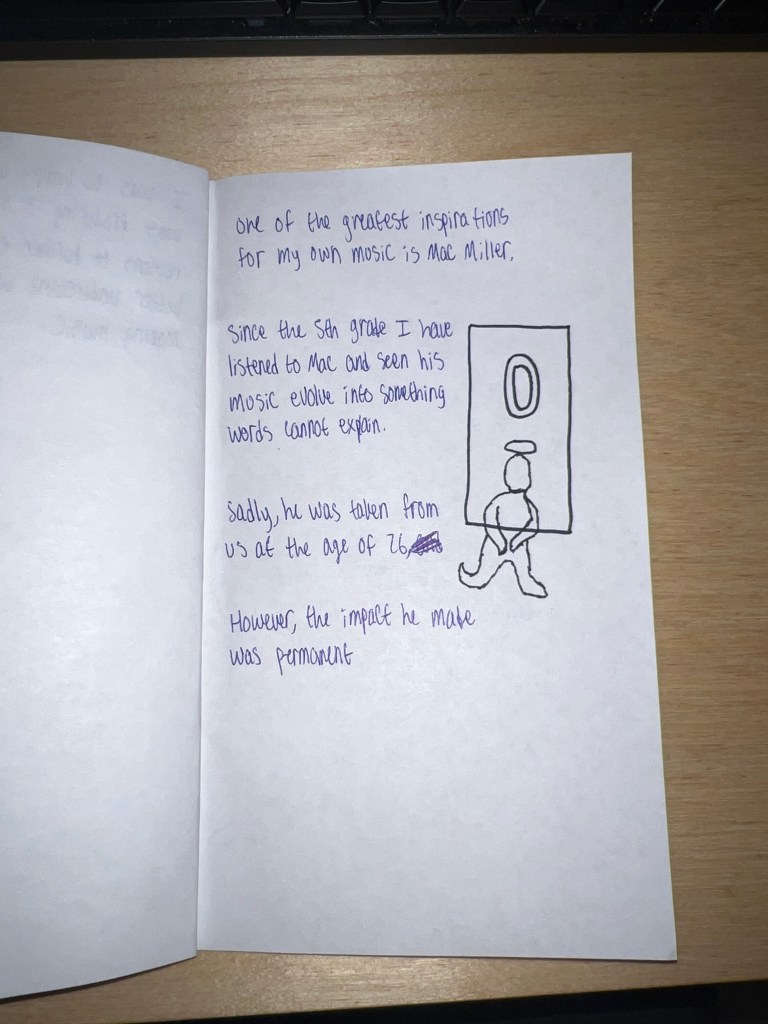 one of the greatest inspirations
for my own music is Mac Miller.
Since the 5th grade I have
listened to Mac and seen his
music evolve into something
words cannot explain.
Sadly, he was taken from
us at the age of 26,
However, the impact he made
was permanent